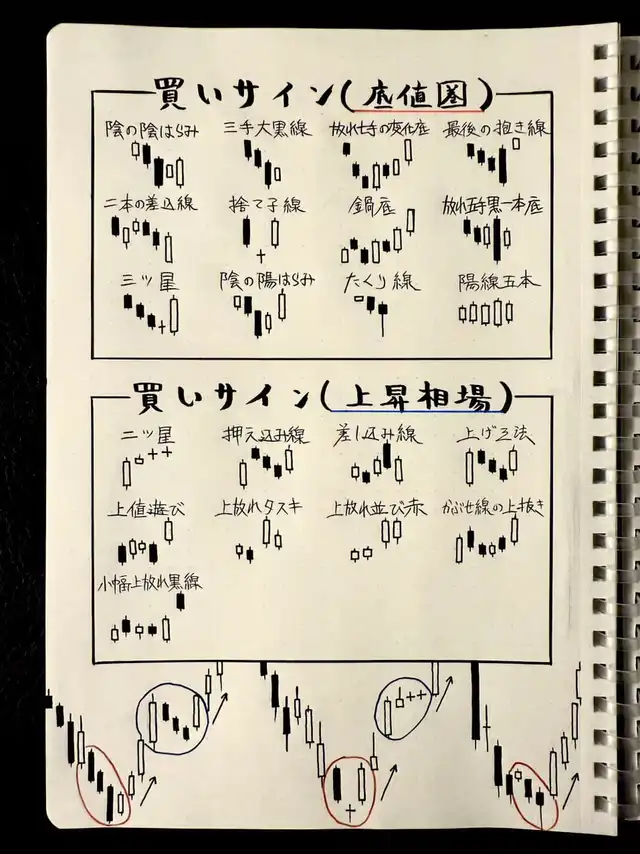 買いサイン(底値圏)
陰の陰はらみ 三手大黒線 放れ七手の変化底 最後の抱き線
二本の差込線 捨て子線 鍋底 放れ五手黒一本底
三ツ星 陰の陽はらみ たくり線 陽線五本
買いサイン(上昇相場)
二ツ星 押え込み線 差し込み線 上げ三法
上値遊び 上放れタスキ 上放れ並び赤 かぶせ線の上抜き
小幅上放れ黒線